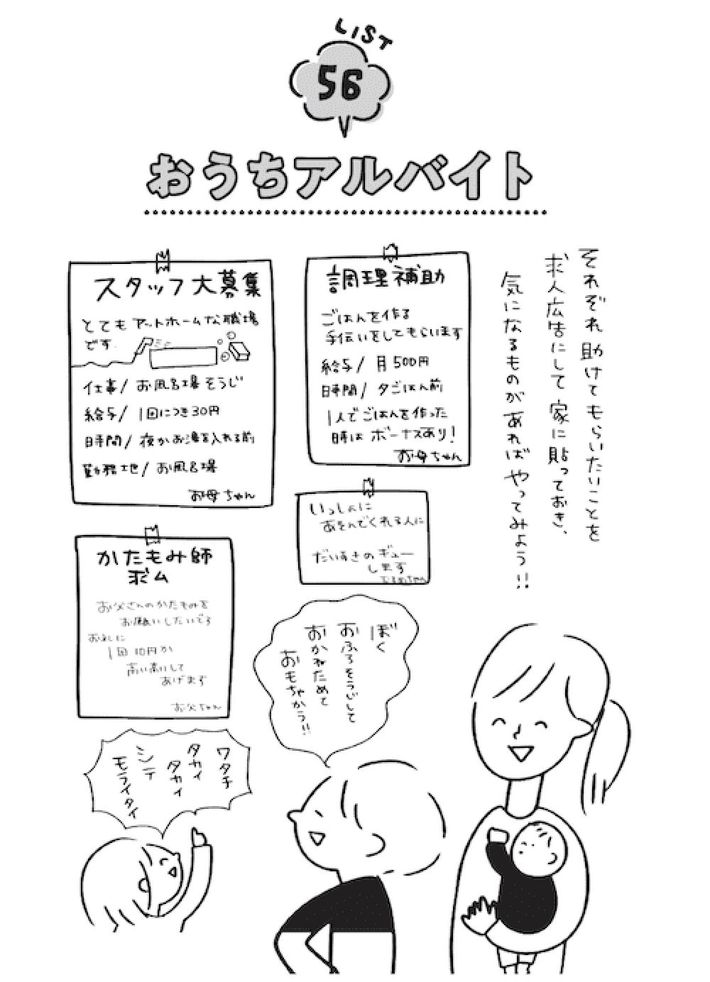 LIST
56
おうちアルバイト
それぞれ助けてもらいたいことを
求人広告にして家に貼っておき、
気になるものがあればやってみよう!!
スタッフ大募集
とてもアットホームな職場
です.
仕事/お風呂場そうじ
給与/1回につき30円
時間/夜かお湯を入れる前
勤務地/お風呂場
お母ちゃん
調理補助
ごはんを作る
手伝いをしてもらいます
給与/月500円
時間/夕ごはん前
1人でごはんを作った
時はボーナスあり!
お母ちゃん
いっしょに
あそんでくれる人に
だいすきのギュー
します
かたもみ師
求ム
お父さんのかたもみを
お願いしたいでる
お礼に
1回10円か
高い高いして
あげます
お父ちゃん
ぼく
おふろそうじして
おかねためて
おもちゃかう!!
ワタチ
タカイ
タカイ
シテ
モライタイ